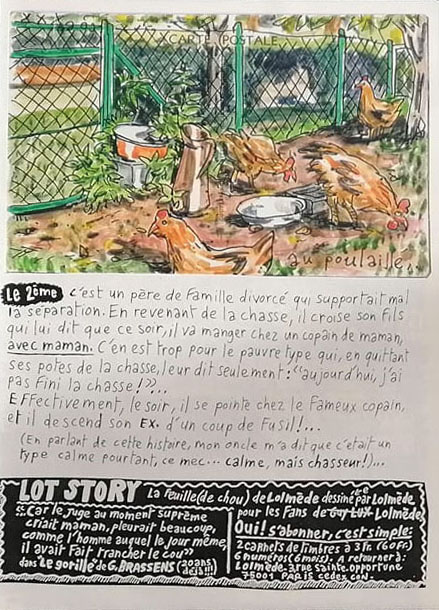 CARTE POSTALE
au poulailler
Le 2ème c'est un père de famille divorcé qui supportait mal
la séparation. En revenant de la chasse, il croise son fils
qui lui dit que ce soir, il va manger chez un copain de maman,
avec maman. C'en est trop pour le pauvre type qui, en quittant
ses potes de la chasse, leur dit seulement: "aujourd'hui, j'ai
pas fini la chasse!"...
Effectivement, le soir, il se pointe chez le fameux copain,
et il descend son EX. d'un coup de fusil!...
(En parlant de cette histoire, mon oncle m'a dit que c'était un
type calme pourtant, ce mec... calme, mais chasseur!)...
LOT STORY La feuille (de chou) de Lolmède dessiné par Lolmède
pour les fans de Guy LUX Lolmède
"Car le juge au moment suprême
criait maman, pleurait beaucoup,
comme l'homme auquel, le jour même,
il avait fait trancher le cou"
dans Le gorille de G. BRASSENS (20 ans, déjà!!!)
Oui! s'abonner, c'est simple:
2 carnets de timbres à 3 Fr (60 Fr.)
6 numéros (6 mois). A retourner à:
Lolmède. 3 rue sainte opportune
75001 PARIS CEDEX CON.